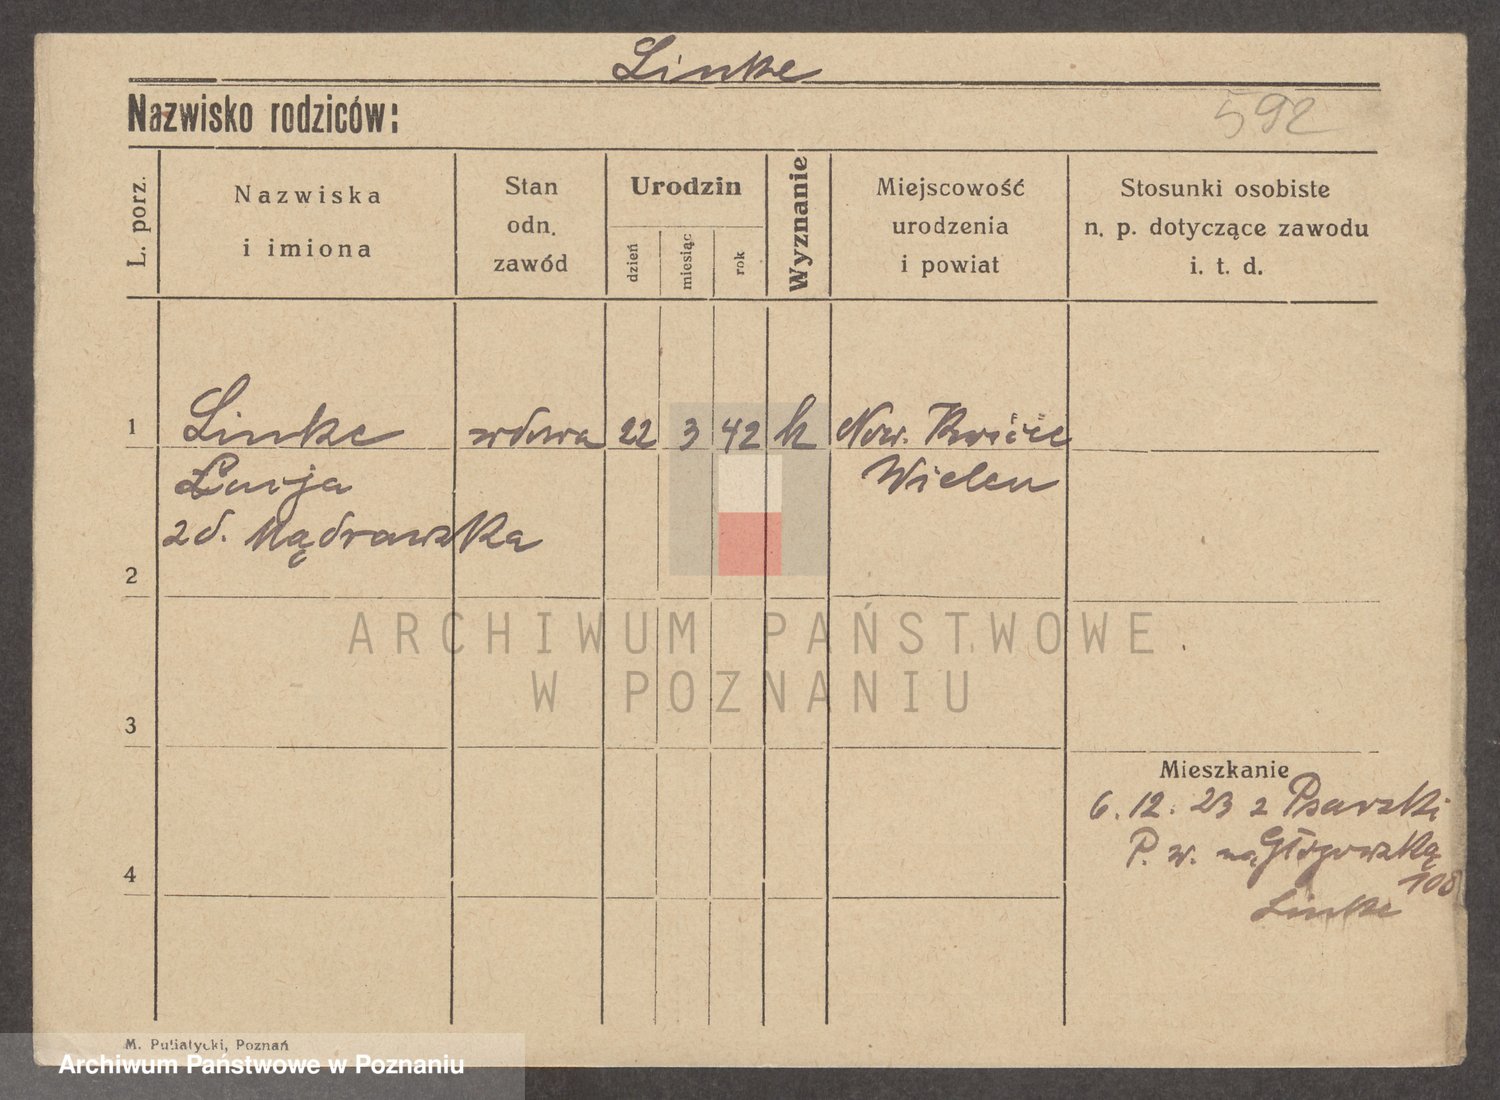 Linke
Nazwisko rodziców:
592
L. porz.
Nazwiska
i imiona
Stan
odn.
zawód
Urodzin
dzień
miesiąc
rok
Wyznanie
Miejscowość
urodzenia
i powiat
Stosunki osobiste
n. p. dotyczące zawodu
i. t. d.
1 Linke wdowa 22 3 42 k Now.
Łucja Wielen
zd. Mądrawska
2
3
4
Mieszkanie
6. 12. 23 z Psarski
P. w. na Głogowską
108
Linke
M. Putiatycki, Poznań
ARCHIWUM PAŃSTWOWE
W POZNANIU
Archiwum Państwowe w Poznaniu